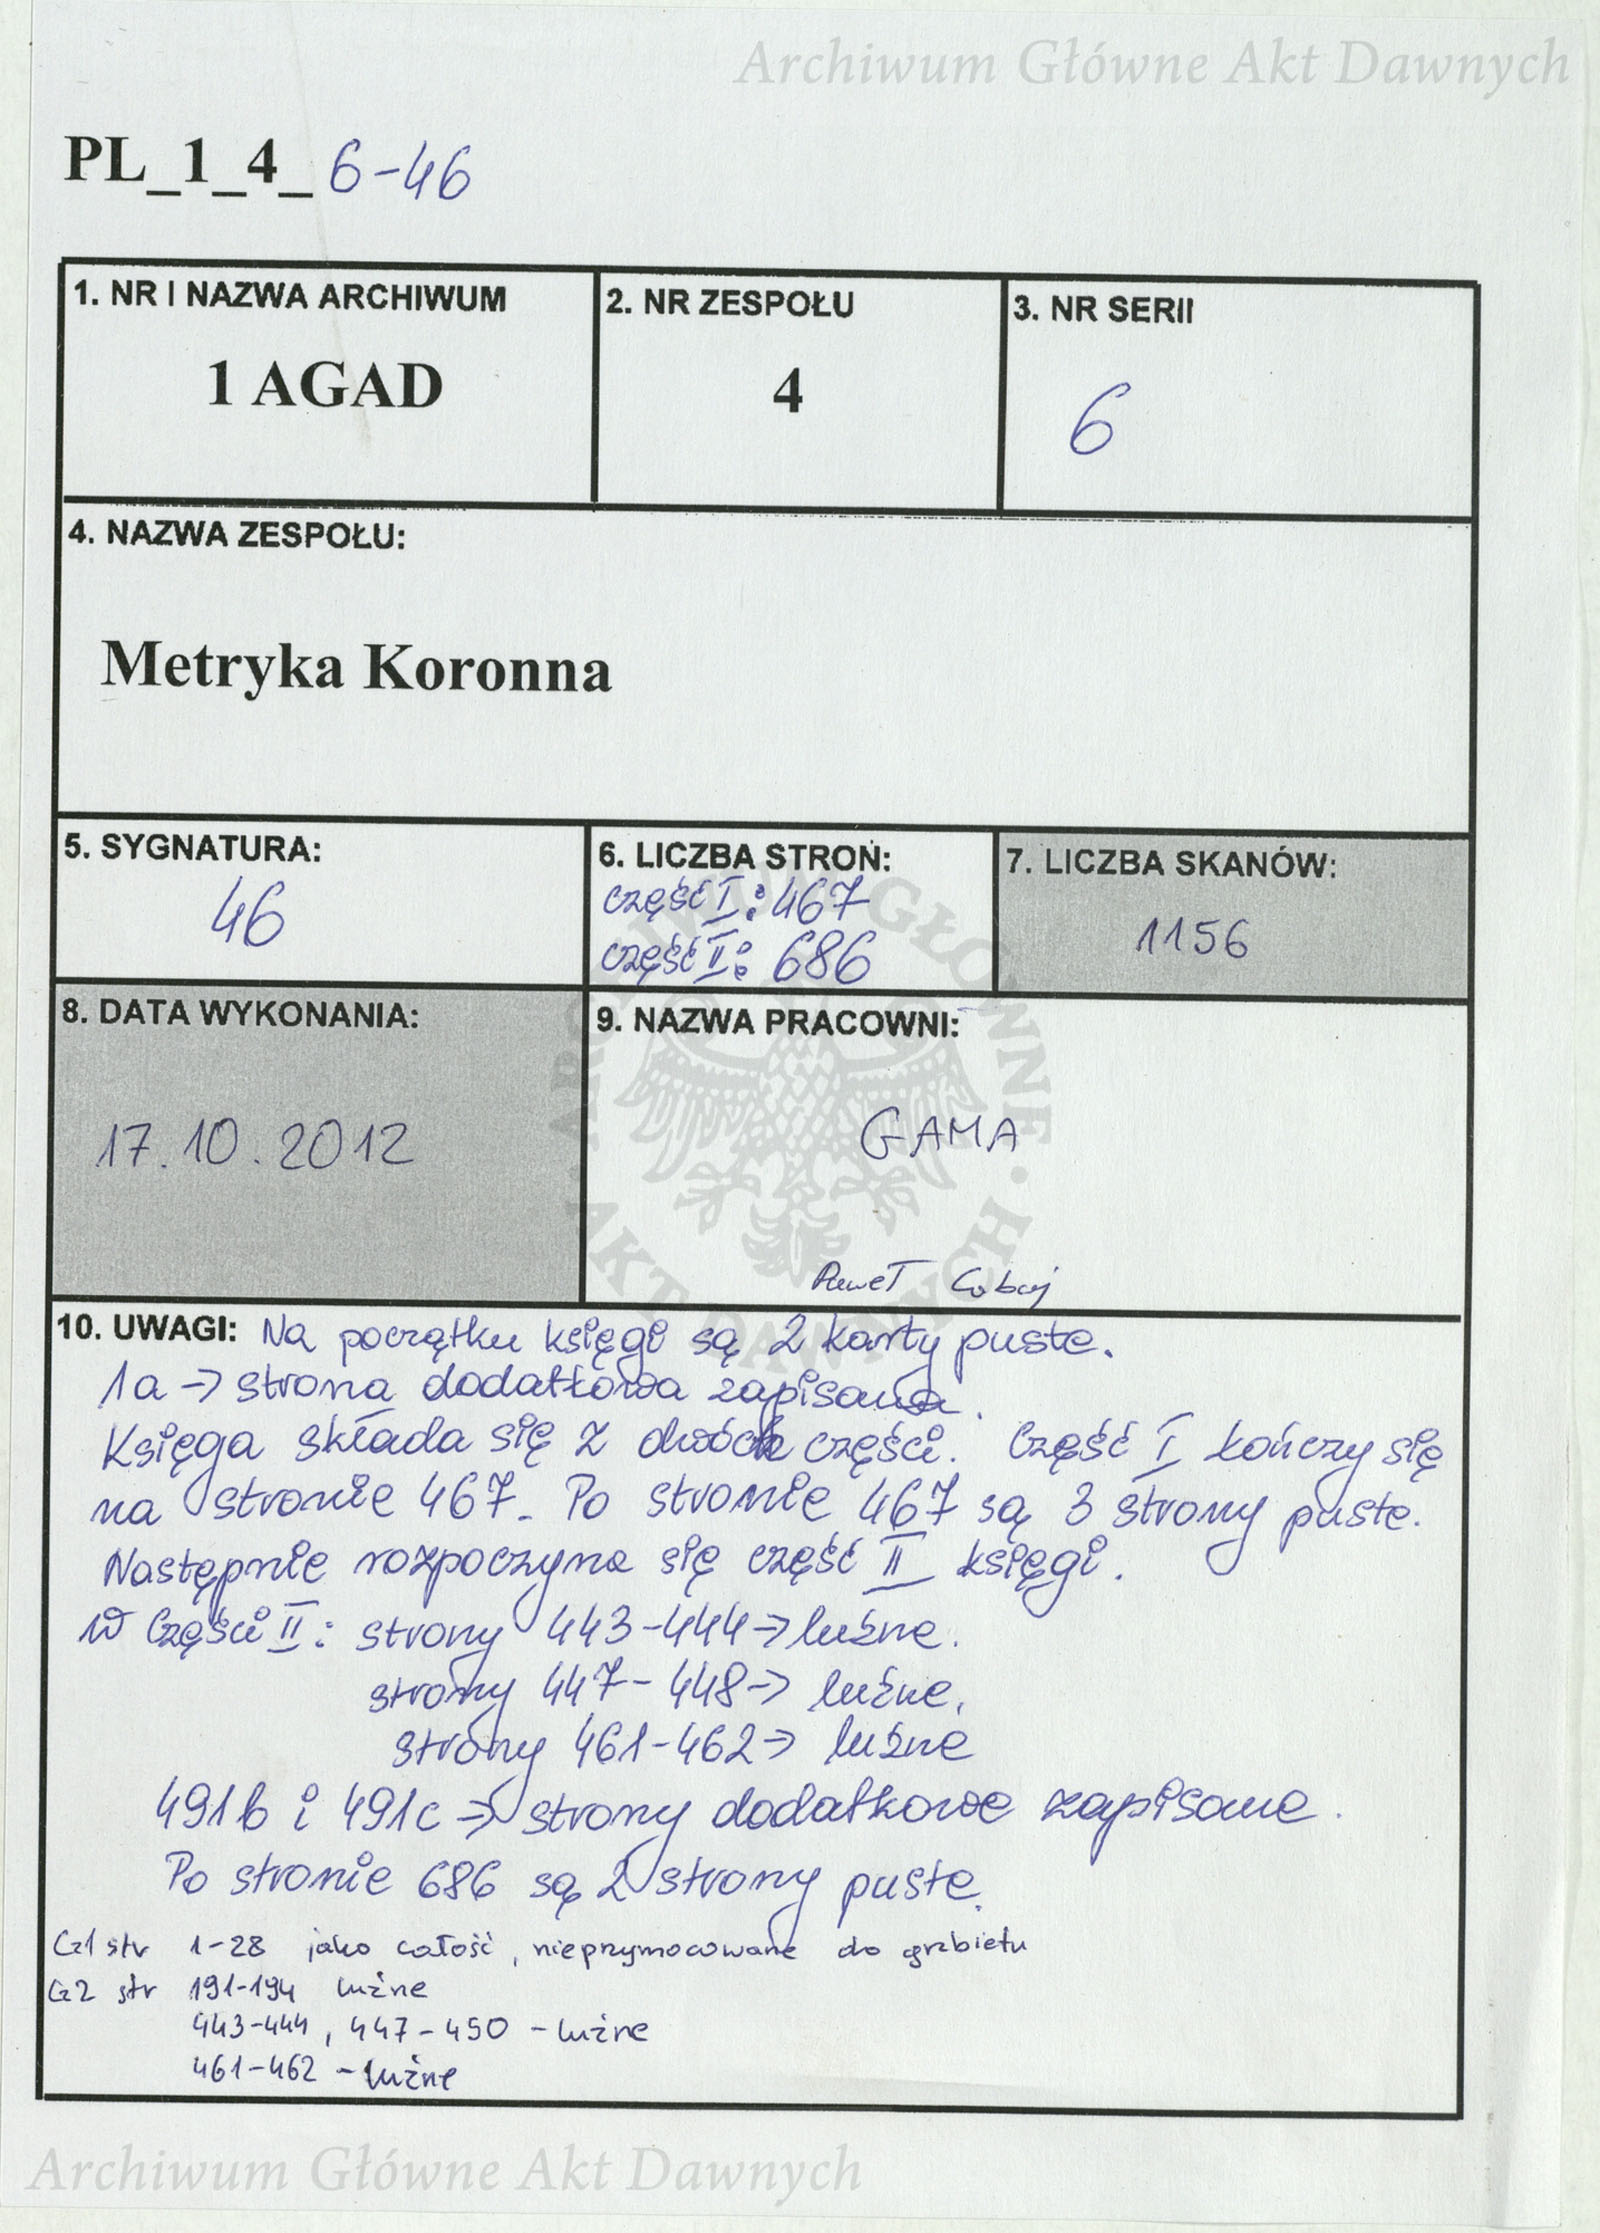 Archiwum Główne Akt Dawnych
PL_1_4_6-46
1. NR I NAZWA ARCHIWUM
1 AGAD
2. NR ZESPOŁU
4
3. NR SERII
6
4. NAZWA ZESPOŁU:
Metryka Koronna
5. SYGNATURA:
46
6. LICZBA STRON:
część I: 467
część II: 686
7. LICZBA SKANÓW:
1156
8. DATA WYKONANIA:
17.10.2012
9. NAZWA PRACOWNI:
GAMA
Paweł
10. UWAGI: Na początku księgi są 2 karty puste.
1a -> strona dodatkowa zapisana.
Księga składa się z dwóch części. Część I kończy się
na stronie 467. Po stronie 467 są 3 strony puste.
Następnie rozpoczyna się część II księgi.
W Części II: strony 443-444 -> luźne.
strony 447-448 -> luźne.
strony 461-462 -> luźne
491b i 491c -> strony dodatkowe zapisane.
Po stronie 686 są 2 strony puste.
Cz1 str 1-28 jako całość, nieprzymocowane do grzbietu
Cz2 str 191-194 luźne
443-444, 447-450 - luźne
461-462 - luźne
Archiwum Główne Akt Dawnych